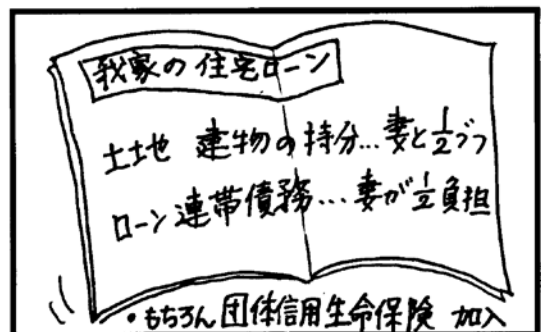 我家の住宅ローン
土地 建物の持分…妻と1/2ズツ
ローン連帯債務…妻が1/2負担
・もちろん団体信用生命保険 加入